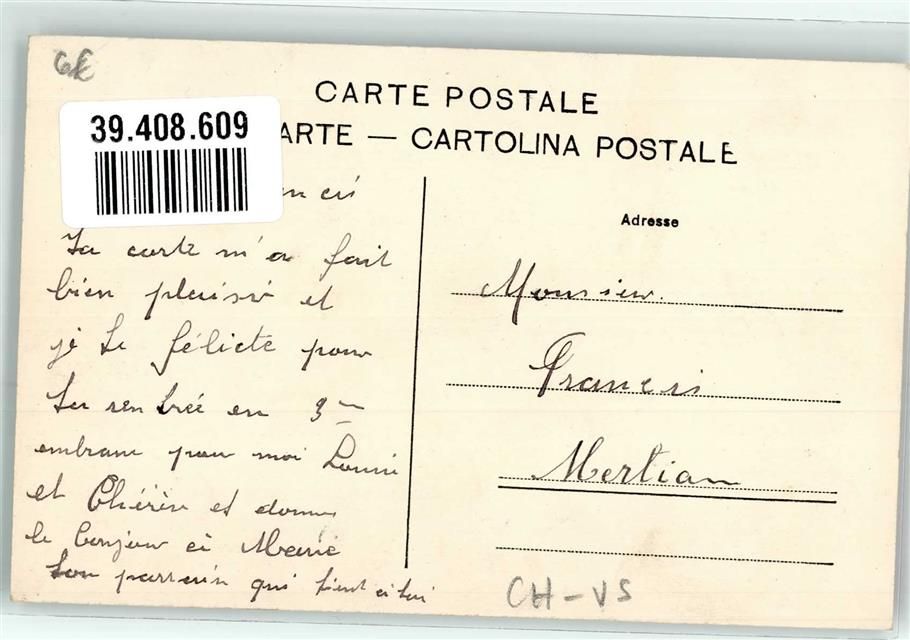 6€
CARTE POSTALE
39.408.609
ARTE — CARTOLINA POSTALE
Adresse
Ta carte m'a fait
bien plaisir et
je te félicte pour
ta rentrée en 9me
embrasse pour moi Louise
et Chérèse et donne
le bonjour à Marie
Ton parrain qui tient à toi
Monsieur.
Francis
Mertian
CH-VS